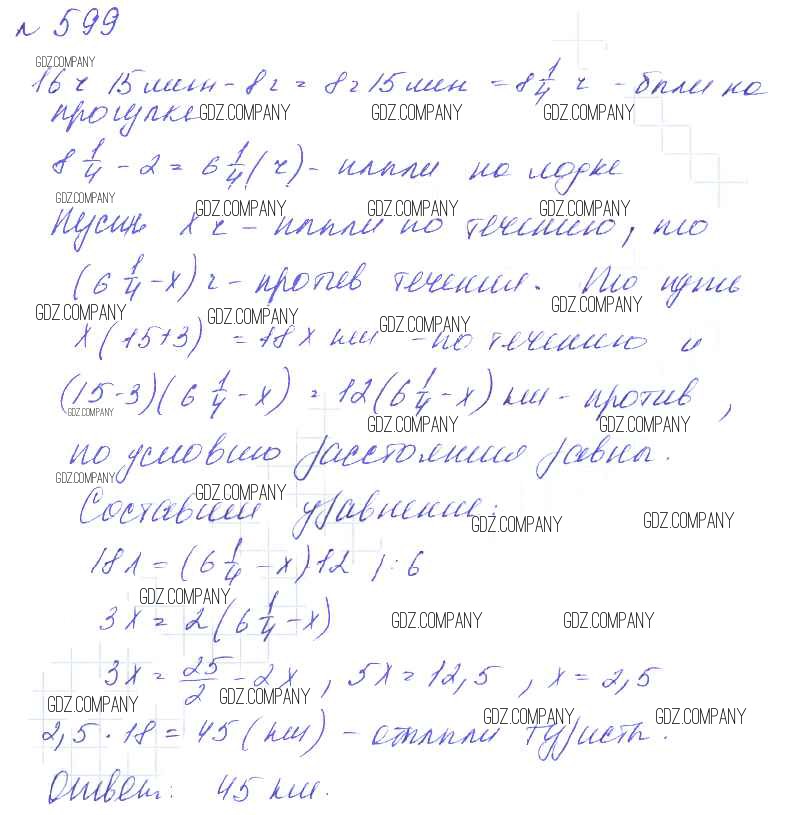 № 599
GDZ.COMPANY
16 ч 15 мин - 8 ч = 8 ч 15 мин = 8 1/4 ч - были на
прогулке GDZ.COMPANY GDZ.COMPANY GDZ.COMPANY
8 1/4 - 2 = 6 1/4 (ч) - плыли на лодке
GDZ.COMPANY GDZ.COMPANY GDZ.COMPANY GDZ.COMPANY
Пусть x ч - плыли по течению, то
(6 1/4 - x) ч - против течения. То путь
GDZ.COMPANY GDZ.COMPANY GDZ.COMPANY GDZ.COMPANY
x (15+3) = 18 x км - по течению и
(15-3)(6 1/4 - x) = 12 (6 1/4 - x) км - против,
GDZ.COMPANY GDZ.COMPANY GDZ.COMPANY
по условию расстояния равны.
GDZ.COMPANY GDZ.COMPANY
Составим уравнение:
GDZ.COMPANY GDZ.COMPANY
18x = (6 1/4 - x) 12 | : 6
GDZ.COMPANY GDZ.COMPANY GDZ.COMPANY
3x = 2 (6 1/4 - x)
3x = 25/2 - 2x, 5x = 12,5, x = 2,5
GDZ.COMPANY GDZ.COMPANY GDZ.COMPANY GDZ.COMPANY
2,5 · 18 = 45 (км) - отплыли туристы.
Ответ: 45 км.